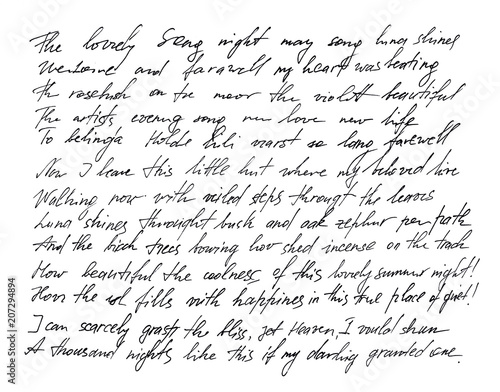 The lovely Song night may song luna shines
Welcome and farewell my heart was beating
The rosebush on the moor the violet beautiful
The artists evening song new love new life
To belinda Holde Lili warst so long farewell
Now I leave this little hut where my beloved live
Walking now with veiled steps througt the leaves
Luna shines throught bush and oak zephur per path
And the birch trees bowing how shed incense on the track
How beautiful the coolness of this lovely summer night!
How the soul fills with happiness in this true place of quiet!
I can scarcely grasp the bliss, yet Heaven, I would shun
A thousand nights like this if my darling granted one.
Adobe Stock
207294894